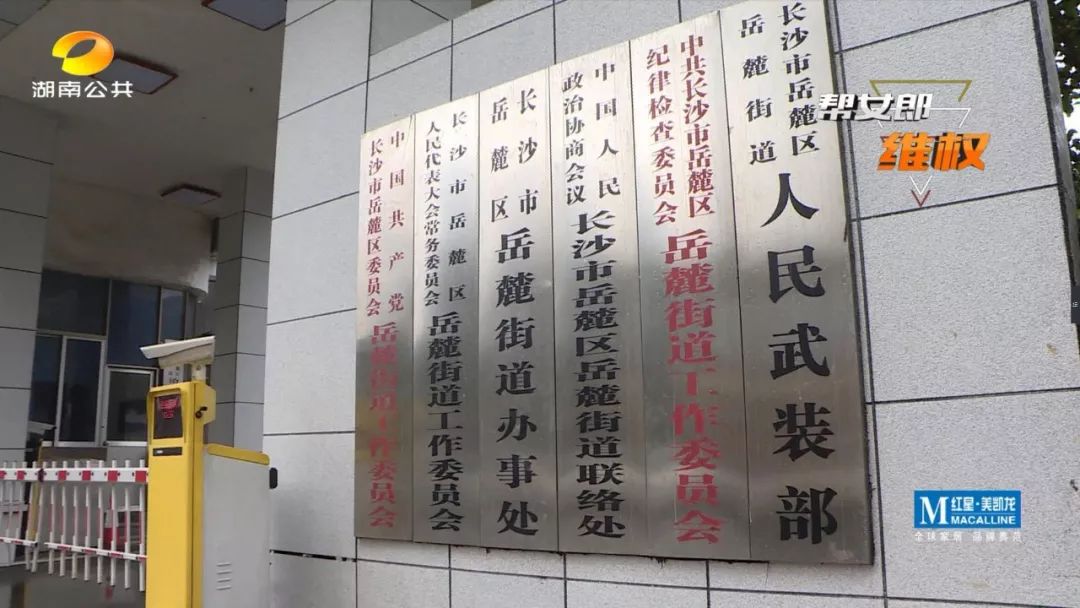 湖南公共
帮女郎
维权
中国共产党
长沙市岳麓区委员会
岳麓街道工作委员会
长沙市岳麓区
人民代表大会常务委员会
岳麓街道工作委员会
长沙市
岳麓区
岳麓街道办事处
中国人民
政治协商会议
长沙市岳麓区岳麓街道联络处
中共长沙市岳麓区
纪律检查委员会
岳麓街道工作委员会
长沙市岳麓区
岳麓街道
人民武装部
M
红星·美凯龙
MACALLINE
全球家居 品牌典范